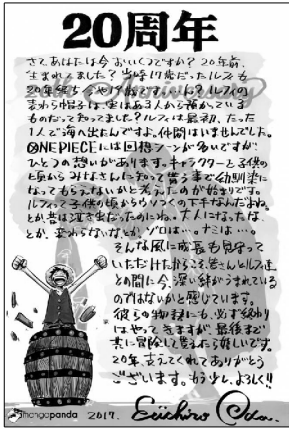 20周年
さて、あなたは今おいくつですか？20年前、
生まれてました？当時17歳だったルフィも
20年経ち今や19歳ですよ。ん？ルフィの
麦わら帽子は、実はある人から預かっている
ものだって知ってました？ルフィは最初、たった
1人で海へ出たんですよ。仲間はいませんでした。
ONE PIECEには回想シーンが多いですが
ひとつの想いがあります。キャラクターを子供の
頃からみなさんに知って貰う事で幼馴染に
なってもらえないかと考えたのが始まりです。
ルフィって子供の頃からウソつくの下手なんだよね。
とか、昔は泣き虫だったのにね。大人になったな、
とか、変わらないなとか、ゾロは…。ナミは…。
そんな風に成長も見守って
いただけたからこそ、皆さんとルフィ達
との間に今、深い絆がうまれている
のではないかと感じています。
彼らの物語にも、必ず終わり
はやってきますが、最後まで
共に冒険して貰えたら嬉しいです。
20年、支えてくれてありがとう
ございます。もう少し、よろしく!!
mangapanda
2017.
Eiichiro Oda.